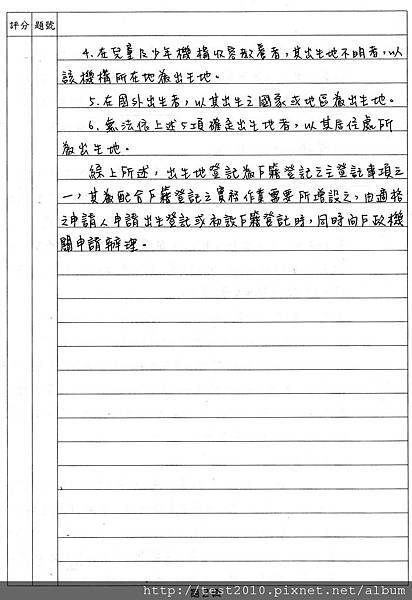 評分 題號
4.在兒童及少年機構收容教養者,其出生地不明者,以
該機構所在地為出生地。
5.在國外出生者,以其出生之國家或地區為出生地。
6.無法依上述5項確定出生地者,以其居住處所
為出生地。
綜上所述,出生地登記為戶籍登記之主登記事項之
一,其為配合戶籍登記之實務作業需要所增設之,由適格
之申請人申請出生登記或初設戶籍登記時,同時向戶政機
關申請辦理。
http://test2010.pixnet.net/album